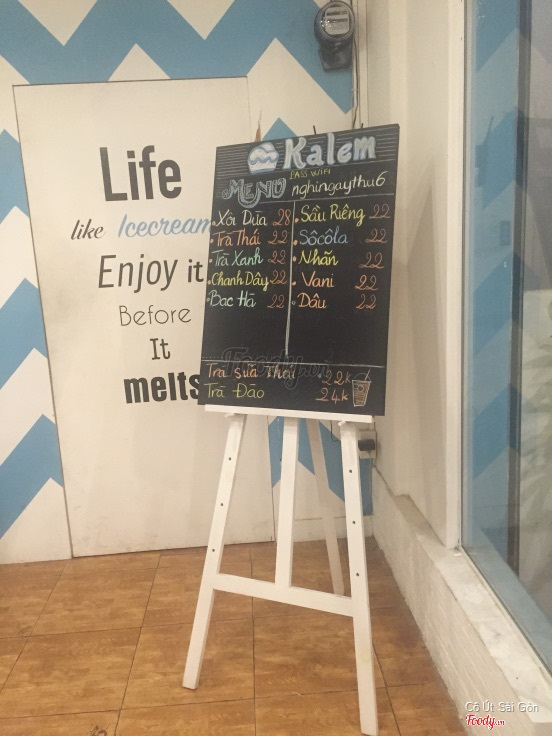 Life
like Icecream
Enjoy it
Before
It
melts
Kalem
PASS WIFI
MENU nghingaythu6
Xôi Dừa 28
Trà Thái 22
Trà Xanh 22
Chanh Dây 22
Bạc Hà 22
Sầu Riêng 22
Sôcôla 22
Nhãn 22
Vani 22
Dâu 22
Foody.vn
Trà sữa Thái 22k
Trà Đào 24k
Cô Út Sài Gòn
Foody.vn